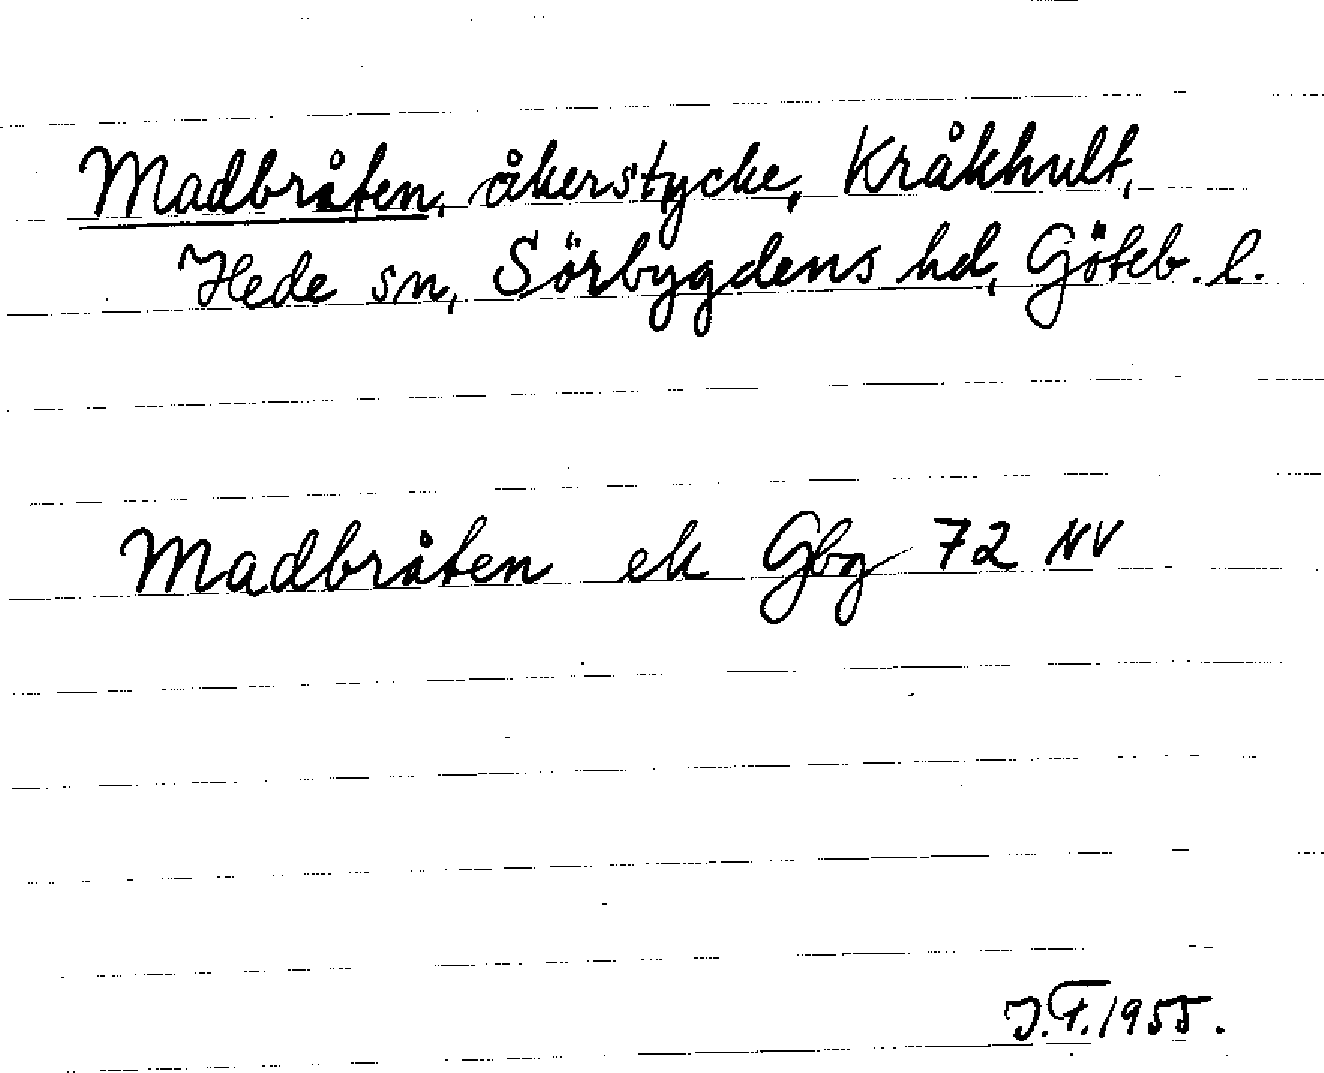 Madbråten, åkerstycke, Kråkhult,
Hede sn, Sörbygdens hd, Göteb. l.
Madbråten ek Gbg 72 NV
J.F. 1955.